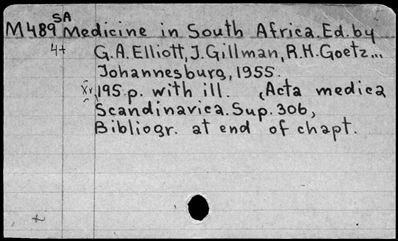 SA
M489 Medicine in South Africa. Ed. by
4+ G. A. Elliott, J. Gillman, R. H. Goetz...
Johannesburg, 1955.
xv, 195 p. with ill. (Acta medica
Scandinavica. Sup. 306,
Bibliogr. at end of chapt.